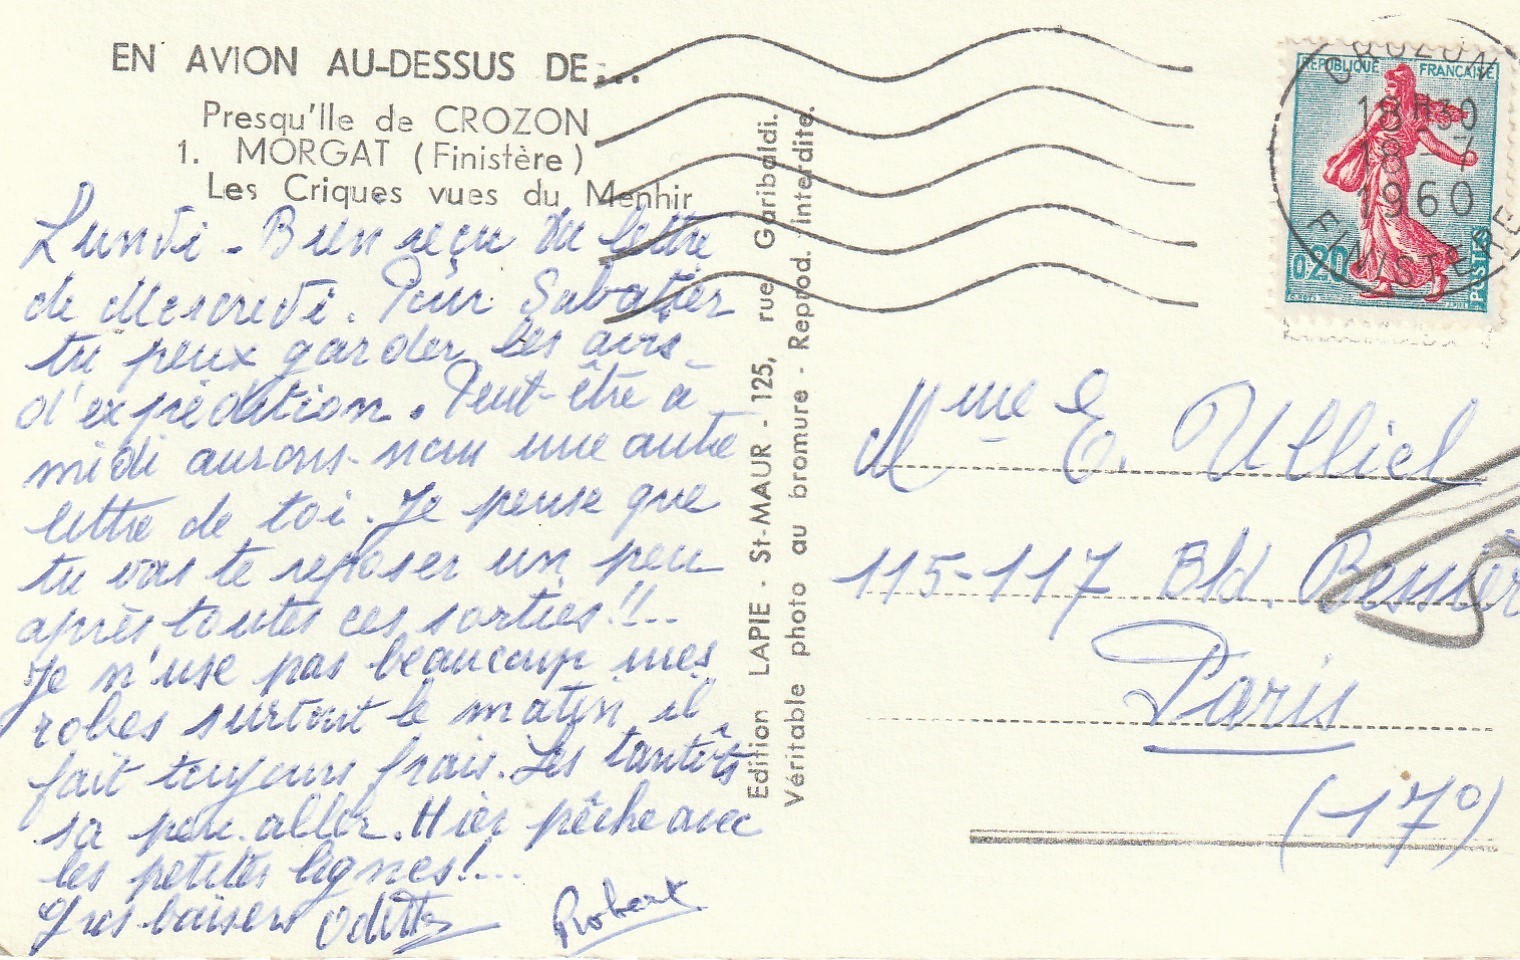 EN AVION AU-DESSUS DE...
Presqu'Ile de CROZON
1. MORGAT (Finistère)
Les Criques vues du Menhir
Lundi - Bien reçu ta lettre
de Mercredi. Pour Sabatier
tu peux garder les avis
d'expédition. Peut-être à
midi aurons-nous une autre
lettre de toi. Je pense que
tu vas te reposer un peu
après toutes ces sorties!!..
Je n'use pas beaucoup mes
robes surtout le matin il
fait toujours frais. Les tantôts
sa peu aller. Hier pêche avec
les petites lignes!...
Gros baisers Odette
Robert
Edition LAPIE - St-MAUR - 125, rue Garibaldi.
Véritable photo au bromure - Reprod. interdite.
REPUBLIQUE FRANCAISE
0,20
POSTES
CROZON
18H30
18 - 
1960
FINISTERE
Mme E. Ulliel
115-117 Bld. Bessièr
Paris
(17º)